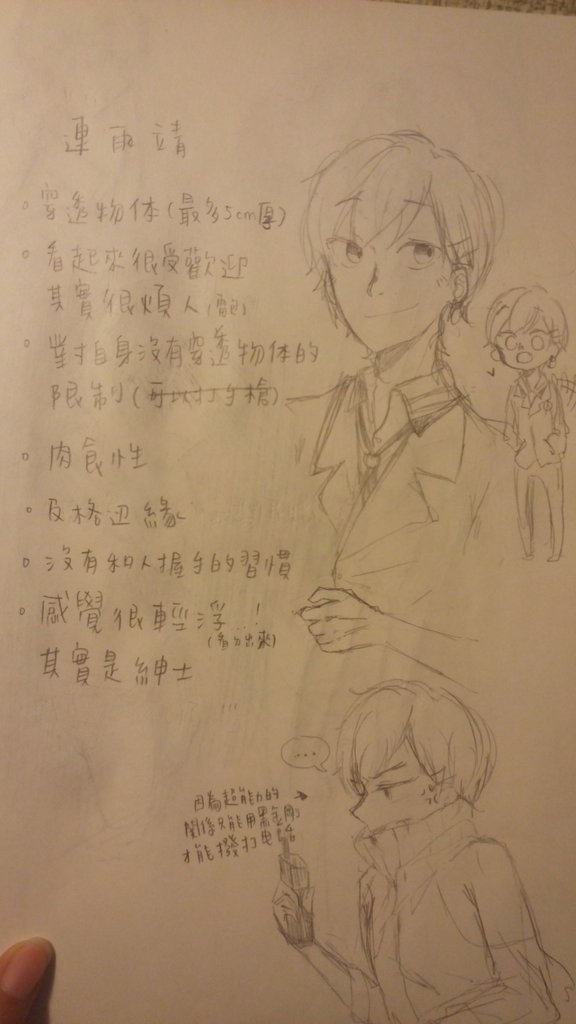 連雨靖
穿透物体(最多5cm厚)
看起來很受歡迎
其實很煩人
對自身沒有穿透物体的
限制(可以打手槍)
肉食性
及格边緣
沒有和人握手的習慣
感覺很輕浮...!
(看不出來)
其實是紳士
...
...
因為超能力的
關係只能用黑金剛
才能撥打電話